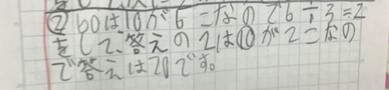 ②60は10が6こなので6÷3=2
をして、答えの2は⑩が2こなの
で答えは20です。